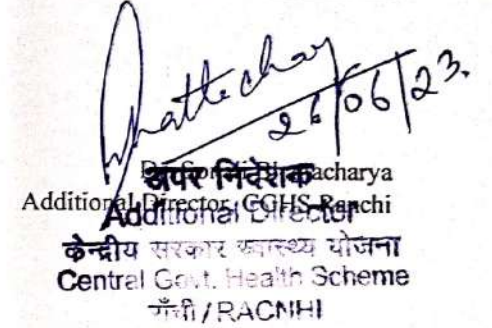 Bhattachary
26/06/23.
Dr. Bhattacharya
Additional Director, CGHS Ranchi
अपर निदेशक
Additional Director
केन्द्रीय सरकार स्वास्थ्य योजना
Central Govt. Health Scheme
राँची / RACNHI